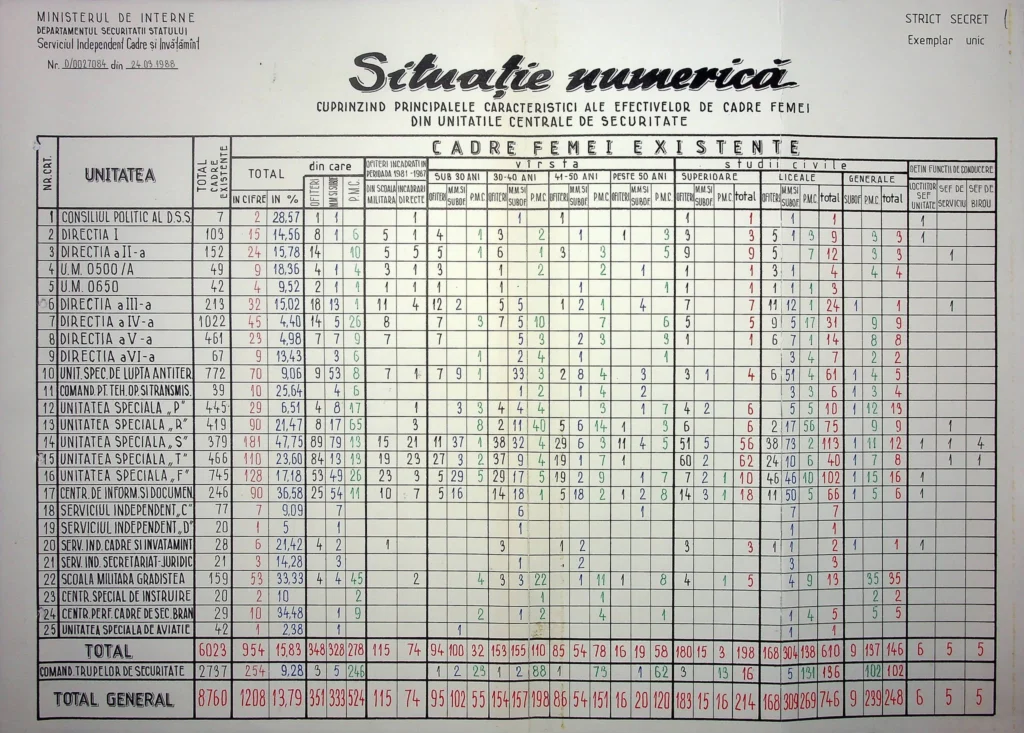 MINISTERUL DE INTERNE
DEPARTAMENTUL SECURITATII STATULUI
Serviciul Independent Cadre și Învățămînt
Nr. D/0027084 din 24.03.1988
STRICT SECRET
Exemplar unic
Situație numerică
CUPRINZIND PRINCIPALELE CARACTERISTICI ALE EFECTIVELOR DE CADRE FEMEI
DIN UNITATILE CENTRALE DE SECURITATE
NR.CRT. UNITATEA TOTAL CADRE EXISTENTE CADRE FEMEI EXISTENTE
TOTAL din care OFITERI INCADRATI IN PERIOADA 1981-1987 vîrsta studii civile DETIN FUNCTII DE CONDUCERE
SUB 30 ANI 30-40 ANI 41-50 ANI PESTE 50 ANI SUPERIOARE LICEALE GENERALE
IN CIFRE IN % OFITERI M.M SI SUBOF P.M.C. DIN SCOALA MILITARA INCADRARI DIRECTE OFITERI M.M.SI SUBOF. P.M.C. OFITERI M.M.SI SUBOF. P.M.C. OFITERI M.M.SI SUBOF. P.M.C. OFITERI M.M.SI SUBOF. P.M.C. OFITERI M.M.SI SUBOF. P.M.C total OFITERI M.M.SI SUBOF. P.M.C total SUBOF P.M.C. total LOCTIITOR SEF UNITATE SEF DE SERVICIU SEF DE BIROU
1 CONSILIUL POLITIC AL D.S.S. 7 2 28,57 1 1 1 1 1 1 1 1 1 1
2 DIRECTIA I 103 15 14,56 8 1 6 5 1 4 1 3 2 1 1 3 3 3 5 1 3 9 3 3 1
3 DIRECTIA a II-a 152 24 15,78 14 10 5 5 5 1 6 1 3 3 5 9 9 5 7 12 3 3 1
4 U.M. 0500/A 49 9 18,36 4 1 4 3 1 3 1 2 2 1 1 1 3 1 4 4 4
5 U.M. 0650 42 4 9,52 2 1 1 1 1 1 1 1 1 1 1 1 1 3
6 DIRECTIA a III-a 213 32 15,02 18 13 1 11 4 12 2 5 5 1 2 1 4 7 7 11 12 1 24 1 1 1
7 DIRECTIA a IV-a 1022 45 4,40 14 5 26 8 7 3 7 5 10 7 6 5 5 9 5 17 31 9 9
8 DIRECTIA a V-a 461 23 4,98 7 7 9 7 7 5 3 2 3 3 1 1 6 7 1 14 8 8
9 DIRECTIA a VI-a 67 9 13,43 3 6 1 2 4 1 1 3 4 7 2 2
10 UNIT. SPEC. DE LUPTA ANTITER. 772 70 9,06 9 53 8 7 1 7 9 1 33 3 2 8 4 3 3 1 4 6 51 4 61 1 4 5
11 COMAND. PT. TEH. OP. SI TRANSMIS. 39 10 25,64 4 6 1 2 1 4 2 3 3 6 1 3 4
12 UNITATEA SPECIALA „P" 445 29 6,51 4 8 17 1 3 3 4 4 4 3 1 7 4 2 6 5 5 10 1 12 13
13 UNITATEA SPECIALA „R" 419 90 21,47 8 17 65 3 8 2 11 40 5 6 14 1 3 6 6 2 17 56 75 9 9 1
14 UNITATEA SPECIALA „S" 379 181 47,75 89 79 13 15 21 11 37 1 38 32 4 29 6 3 11 4 5 51 5 56 38 73 2 113 1 11 12 1 1 4
15 UNITATEA SPECIALA „T" 466 110 23,60 84 13 13 19 23 27 3 2 37 9 4 19 1 7 1 60 2 62 24 10 6 40 1 7 8 1 1
16 UNITATEA SPECIALA „F" 745 128 17,18 53 49 26 23 3 5 29 5 29 17 5 19 2 9 1 7 7 2 1 10 46 46 10 102 1 15 16 1
17 CENTR. DE INFORM. SI DOCUMEN. 246 90 36,58 25 54 11 10 7 5 16 14 18 1 5 18 2 1 2 8 14 3 1 18 11 50 5 66 1 5 6 1
18 SERVICIUL INDEPENDENT „C" 77 7 9,09 7 6 1 7 7
19 SERVICIUL INDEPENDENT „D" 20 1 5 1 1 1 1
20 SERV. IND. CADRE SI INVATAMINT 28 6 21,42 4 2 1 3 1 2 3 3 1 1 2 1 1 1
21 SERV. IND. SECRETARIAT-JURIDIC 21 3 14,28 3 1 2 3 3
22 SCOALA MILITARA GRADISTEA 159 53 33,33 4 4 45 2 4 3 3 22 1 11 1 8 4 1 5 4 9 13 35 35
23 CENTR. SPECIAL DE INSTRUIRE 20 2 10 2 1 1 2 2
24 CENTR. PERF. CADRE DE SEC. BRAN 29 10 34,48 1 9 2 1 2 4 1 1 4 5 5 5
25 UNITATEA SPECIALA DE AVIATIE 42 1 2,38 1 1 1 1
TOTAL 6023 954 15,83 348 328 278 115 74 94 100 32 153 155 110 85 54 78 16 19 58 180 15 3 198 168 304 138 610 9 137 146 6 5 5
COMAND TRUPELOR DE SECURITATE 2737 254 9,28 3 5 246 1 2 23 1 2 88 1 73 1 62 3 13 16 5 131 136 102 102
TOTAL GENERAL 8760 1208 13,79 351 333 524 115 74 95 102 55 154 157 198 86 54 151 16 20 120 183 15 16 214 168 309 269 746 9 239 248 6 5 5